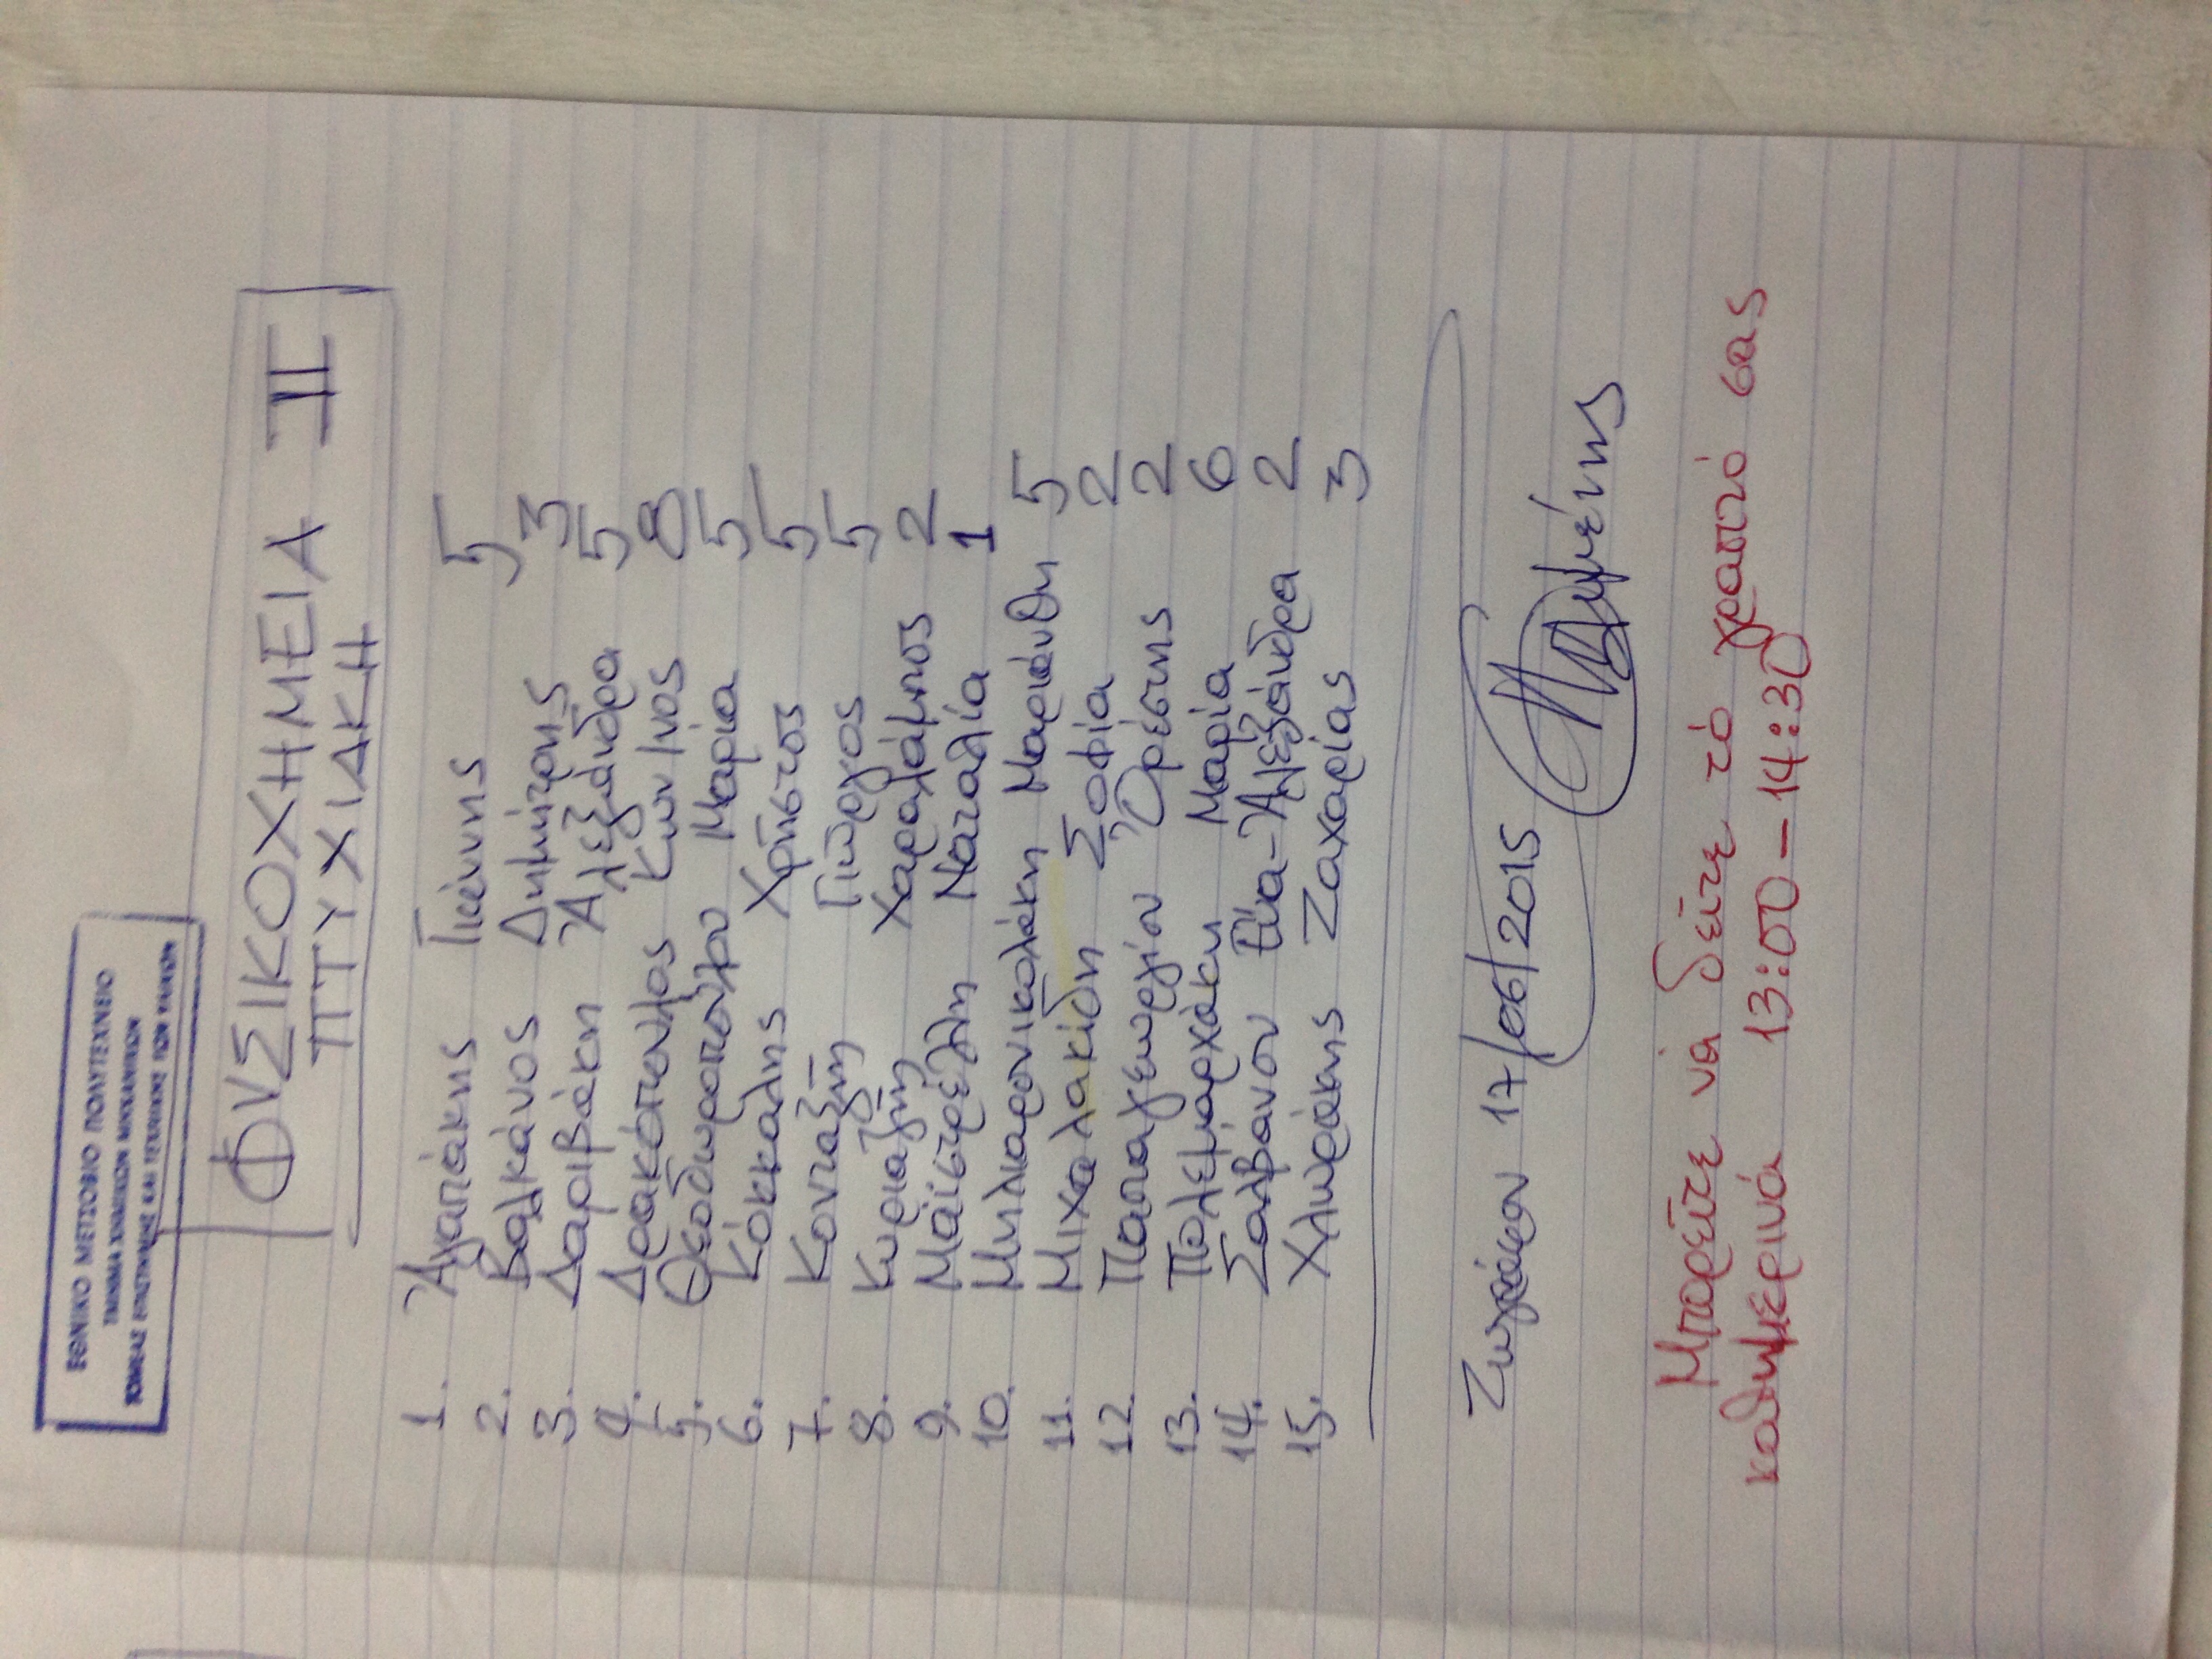 ΕΘΝΙΚΟ ΜΕΤΣΟΒΙΟ ΠΟΛΥΤΕΧΝΕΙΟ
ΤΜΗΜΑ ΧΗΜΙΚΩΝ ΜΗΧΑΝΙΚΩΝ
ΤΟΜΕΑΣ ΕΠΙΣΤΗΜΗΣ ΚΑΙ ΤΕΧΝΙΚΗΣ ΤΩΝ ΥΛΙΚΩΝ
ΦΥΣΙΚΟΧΗΜΕΙΑ ΙΙ
ΠΤΥΧΙΑΚΗ
1. Ἀγαπάκης Γιάννης 5
2. Βαλκάνος Δημήτρης 3
3. Δαριβάκη Ἀλεξάνδρα 5
4. Δρακόπουλος Κων/νος 8
5. Θεοδωροπούλου Μαρία 5
6. Κόκκαλης Χρῆστος 5
7. Κονταξῆ Γιῶργος 5
8. Κυριαζῆ Χαράλαμπος 2
9. Μαϊστρέλλη Ναταλία 1
10. Μηλιαρονικολάκη Μαριάνθη 5
11. Μιχαλακίδη Σοφία 2
12. Παπαγεωργίου Ὀρέστης 2
13. Πολεμαρχάκη Μαρία 6
14. Σαλβάνου Εὔα-Ἀλεξάνδρα 2
15. Χλωράκης Ζαχαρίας 3
Ζωγράφου 17/06/2015
Μπορεῖτε νά δεῖτε τό γραπτό σας
καθημερινά 13:00-14:30